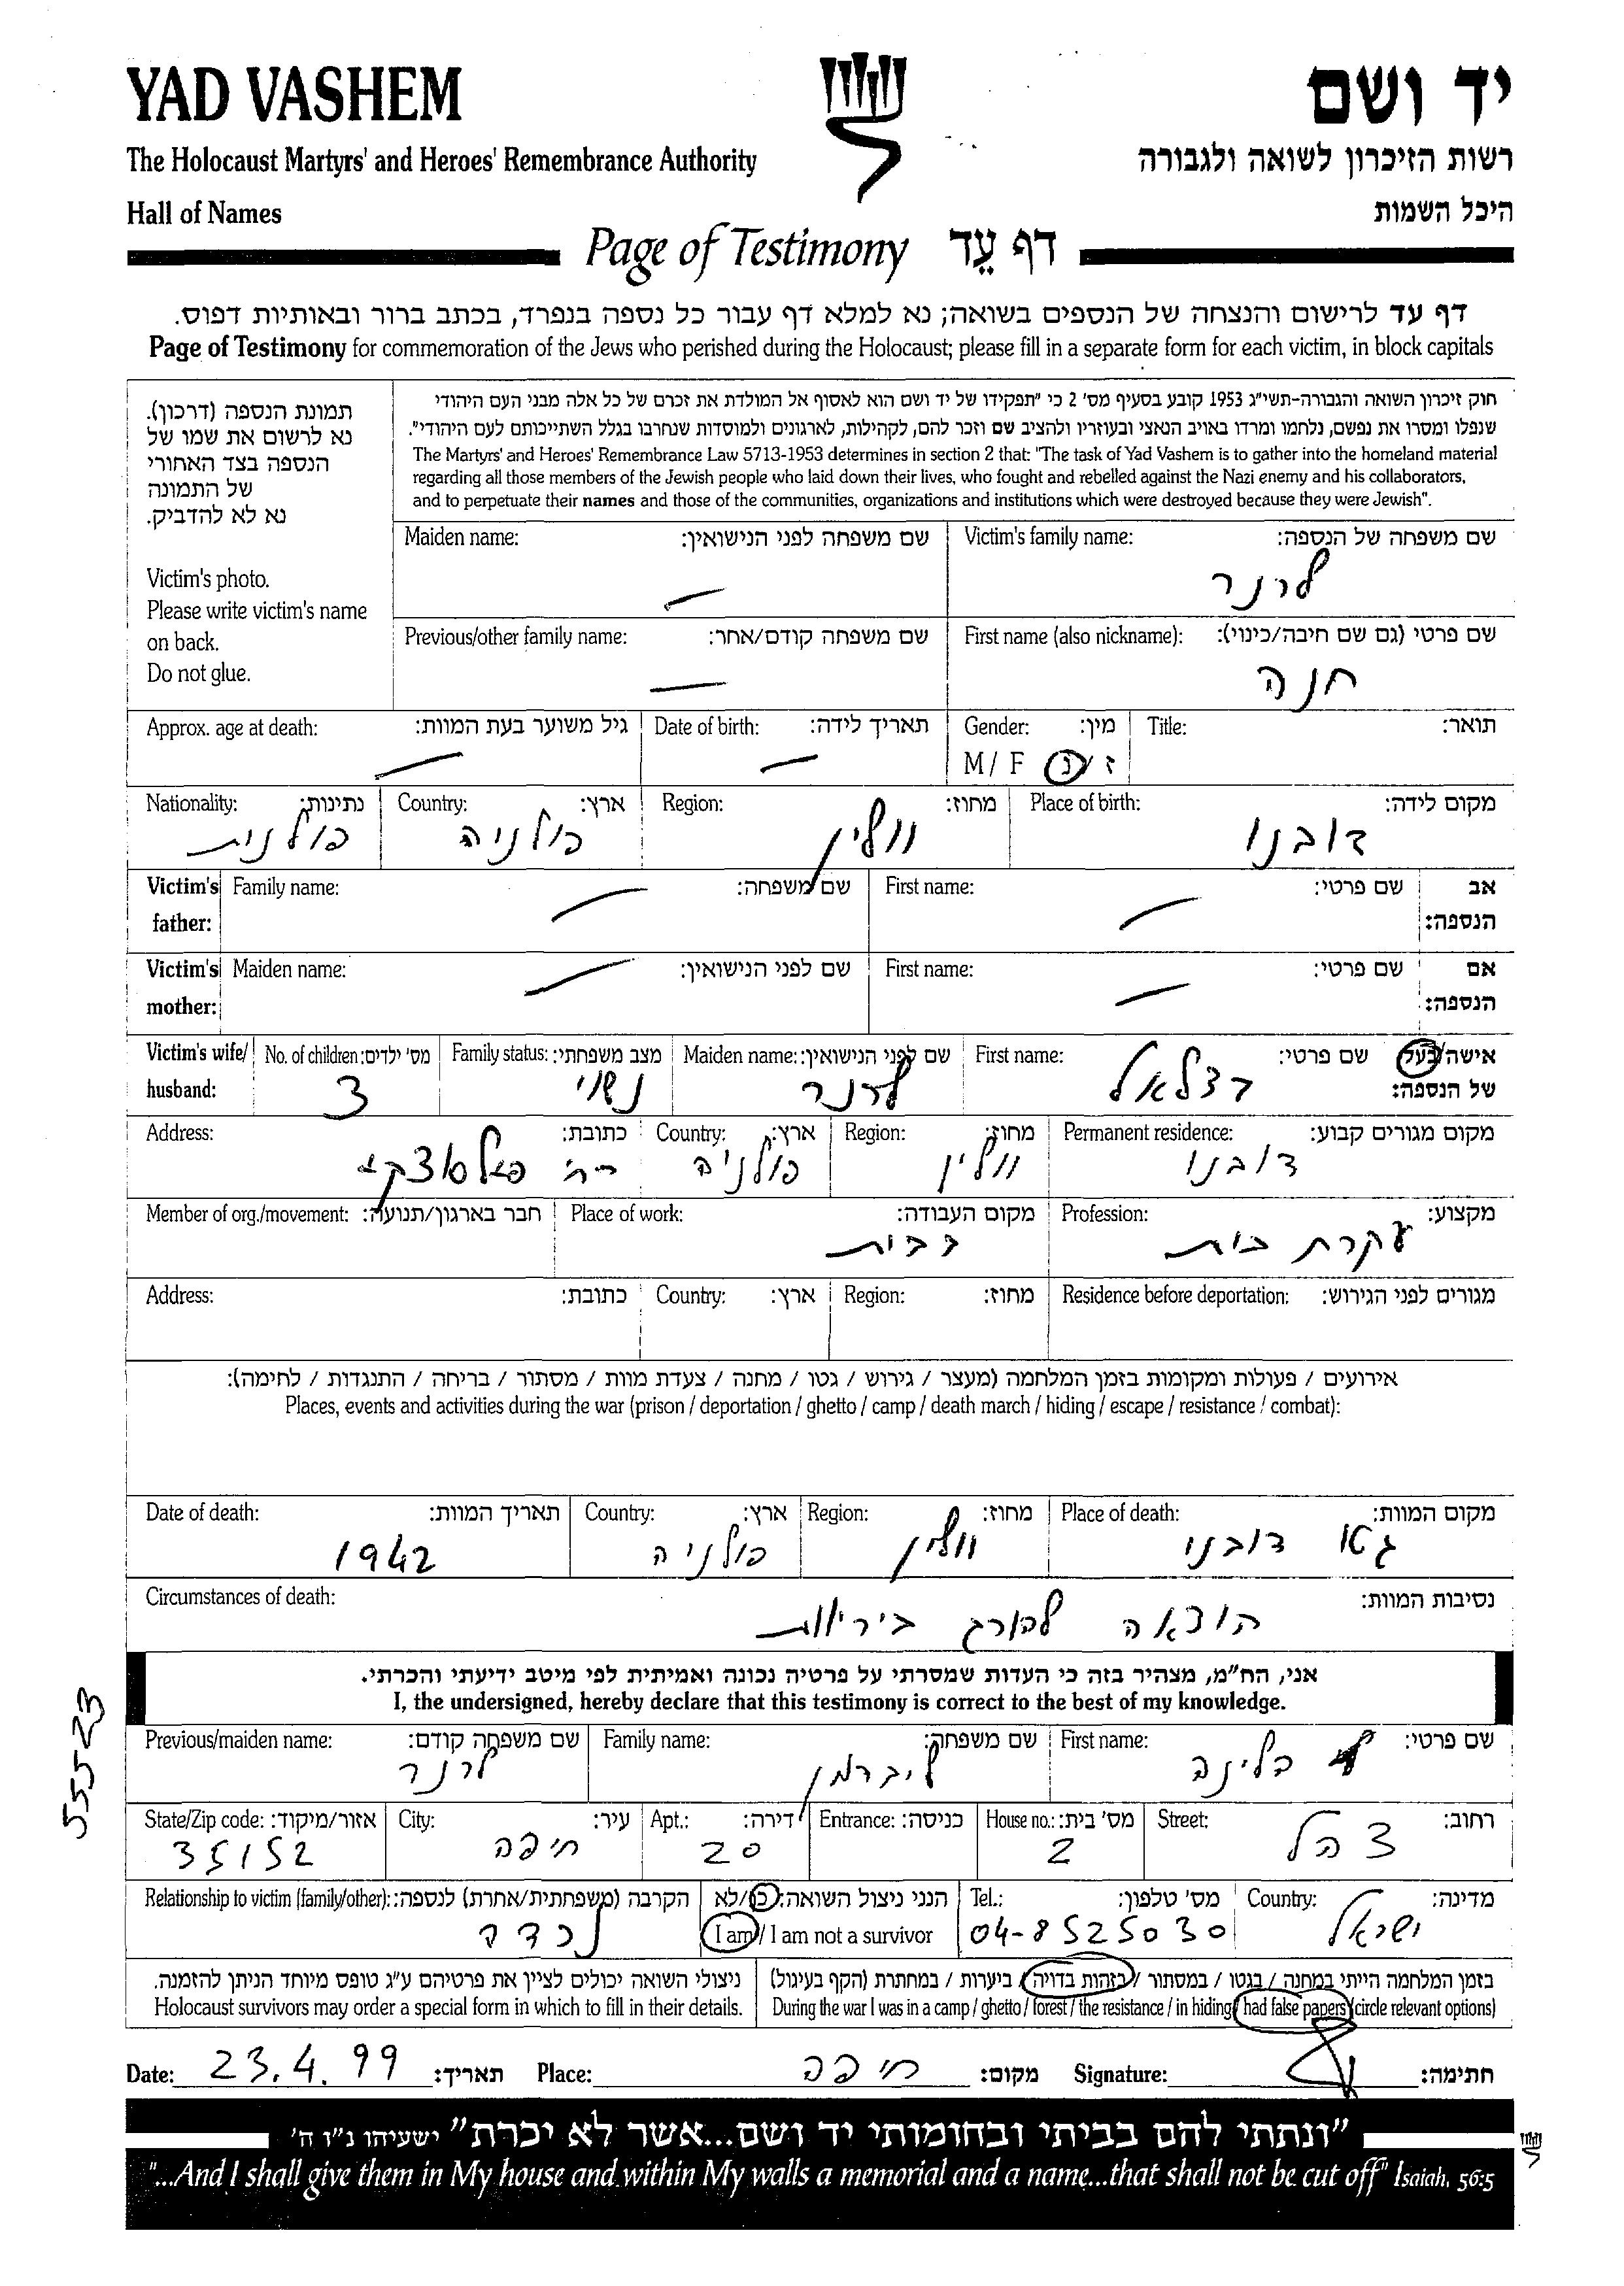 YAD VASHEM
יד ושם
The Holocaust Martyrs' and Heroes' Remembrance Authority
רשות הזיכרון לשואה ולגבורה
Hall of Names
היכל השמות
Page of Testimony דף עֵד
דף עד לרישום והנצחה של הנספים בשואה; נא למלא דף עבור כל נספה בנפרד, בכתב ברור ובאותיות דפוס.
Page of Testimony for commemoration of the Jews who perished during the Holocaust; please fill in a separate form for each victim, in block capitals
תמונת הנספה (דרכון).
נא לרשום את שמו של
הנספה בצד האחורי
של התמונה
נא לא להדביק.
Victim's photo.
Please write victim's name
on back.
Do not glue.
חוק זיכרון השואה והגבורה-תשי"ג 1953 קובע בסעיף מס' 2 כי "תפקידו של יד ושם הוא לאסוף אל המולדת את זכרם של כל אלה מבני העם היהודי
שנפלו ומסרו את נפשם, נלחמו ומרדו באויב הנאצי ובעוזריו ולהציב שם וזכר להם, לקהילות, לארגונים ולמוסדות שנחרבו בגלל השתייכותם לעם היהודי".
The Martyrs' and Heroes' Remembrance Law 5713-1953 determines in section 2 that: "The task of Yad Vashem is to gather into the homeland material
regarding all those members of the Jewish people who laid down their lives, who fought and rebelled against the Nazi enemy and his collaborators,
and to perpetuate their names and those of the communities, organizations and institutions which were destroyed because they were Jewish".
Maiden name: שם משפחה לפני הנישואין:
Victim's family name: שם משפחה של הנספה:
לרנר
Previous/other family name: שם משפחה קודם/אחר:
First name (also nickname): שם פרטי (גם שם חיבה/כינוי):
חנה
Approx. age at death: גיל משוער בעת המוות: Date of birth: תאריך לידה: Gender: מין: Title: תואר:
M / F ז / נ
Nationality: נתינות: Country: ארץ: Region: מחוז: Place of birth: מקום לידה:
פולנית פולניה ווולין דובנו
Victim's father: Family name: שם משפחה: First name: שם פרטי: אב הנספה:
Victim's mother: Maiden name: שם לפני הנישואין: First name: שם פרטי: אם הנספה:
Victim's wife/ husband: No. of children: מס' ילדים: Family status: מצב משפחתי: Maiden name: שם לפני הנישואין: First name: שם פרטי: אישה/בעל של הנספה:
3 נשוי לרנר בצלאל
Address: כתובת: Country: ארץ: Region: מחוז: Permanent residence: מקום מגורים קבוע:
פולניה ווולין דובנו
Member of org./movement: חבר בארגון/תנועה: Place of work: מקום העבודה: Profession: מקצוע:
בבית עקרת בית
Address: כתובת: Country: ארץ: Region: מחוז: Residence before deportation: מגורים לפני הגירוש:
אירועים / פעולות ומקומות בזמן המלחמה (מעצר / גירוש / גטו / מחנה / צעדת מוות / מסתור / בריחה / התנגדות / לחימה):
Places, events and activities during the war (prison / deportation / ghetto / camp / death march / hiding / escape / resistance / combat):
Date of death: תאריך המוות: Country: ארץ: Region: מחוז: Place of death: מקום המוות:
1942 פולניה ווולין גטו דובנו
Circumstances of death: נסיבות המוות:
הוצאה להורג ביריות
אני, הח"מ, מצהיר בזה כי העדות שמסרתי על פרטיה נכונה ואמיתית לפי מיטב ידיעתי והכרתי.
I, the undersigned, hereby declare that this testimony is correct to the best of my knowledge.
Previous/maiden name: שם משפחה קודם: Family name: שם משפחה: First name: שם פרטי:
לרנר ליברמן הלינה
State/Zip code: אזור/מיקוד: City: עיר: Apt.: דירה: Entrance: כניסה: House no.: מס' בית: Street: רחוב:
35152 חיפה 20 2 צהל
Relationship to victim (family/other): הקרבה (משפחתית/אחרת) לנספה: הנני ניצול השואה: כן/לא Tel.: מס' טלפון: Country: מדינה:
נכדה I am / I am not a survivor 04-8525030 ישראל
ניצולי השואה יכולים לציין את פרטיהם ע"ג טופס מיוחד הניתן להזמנה.
Holocaust survivors may order a special form in which to fill in their details.
בזמן המלחמה הייתי במחנה / בגטו / במסתור / בזהות בדויה / ביערות / במחתרת (הקף בעיגול)
During the war I was in a camp / ghetto / forest / the resistance / in hiding / had false papers (circle relevant options)
Date: 23.4.99 תאריך: Place: חיפה מקום: Signature: חתימה:
"ונתתי להם בביתי ובחומותי יד ושם...אשר לא יכרת" ישעיהו נ"ו ה'
"...And I shall give them in My house and within My walls a memorial and a name...that shall not be cut off" Isaiah, 56:5
55523